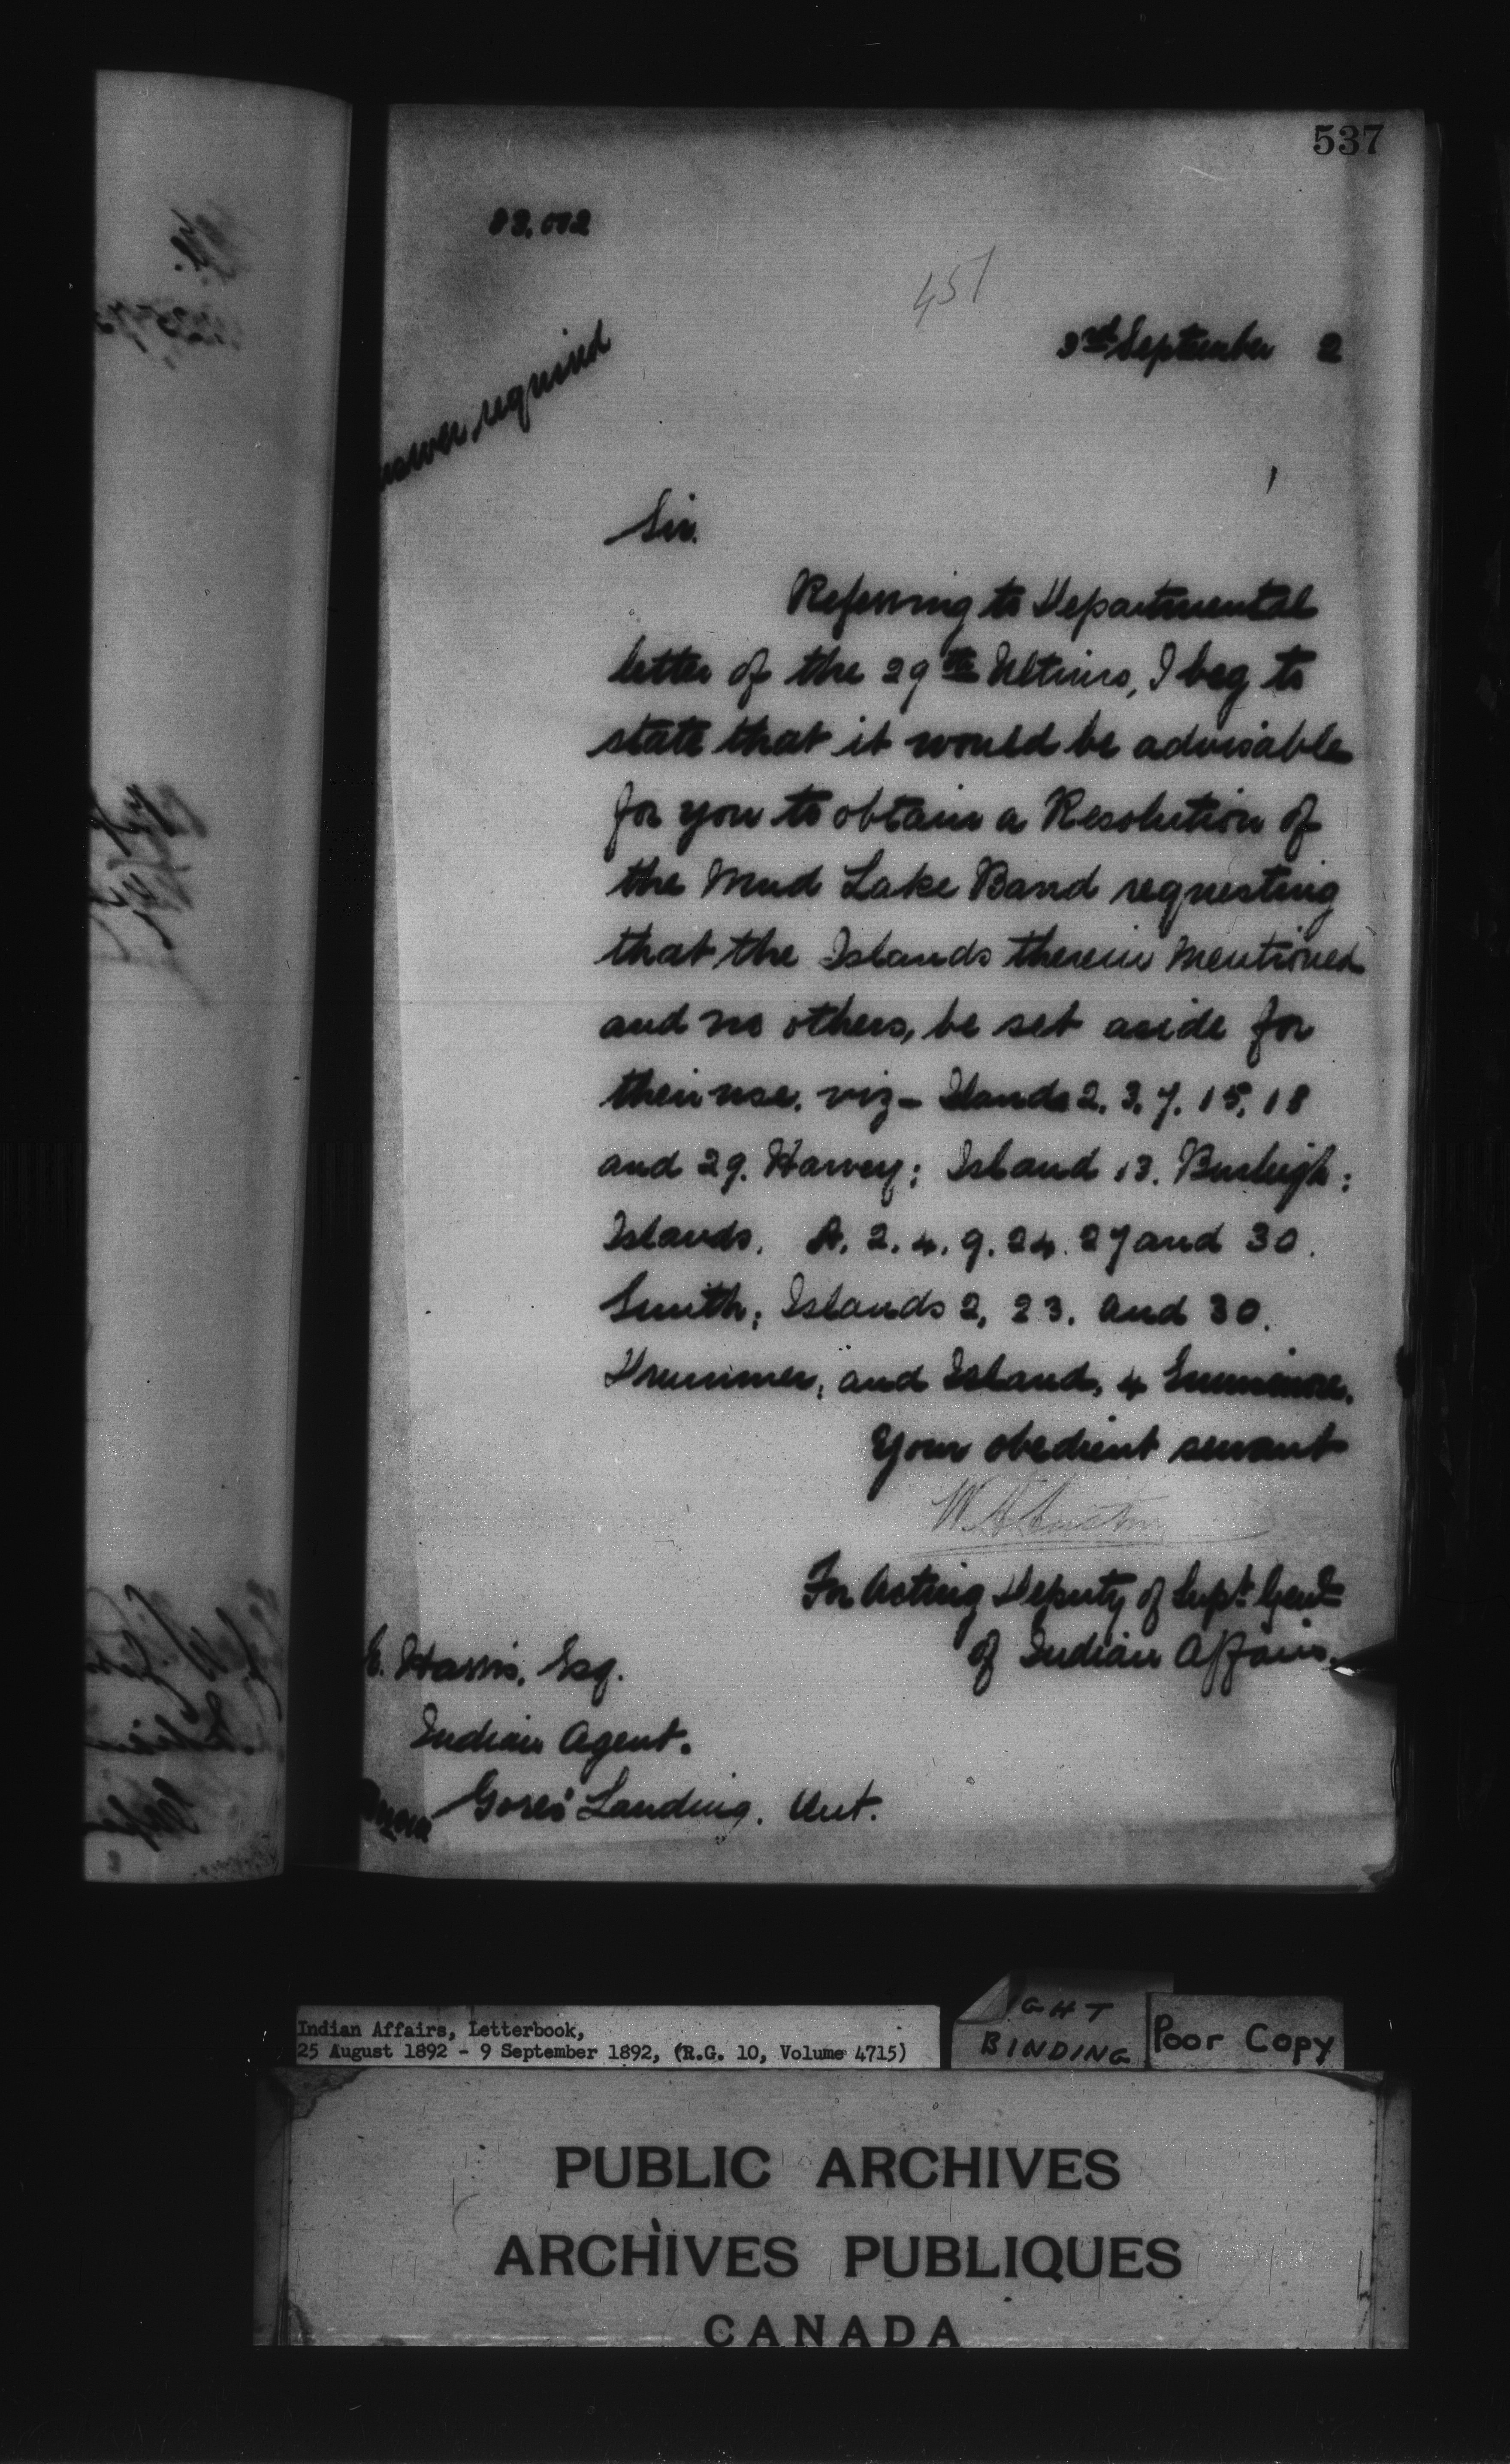 537
451
3rd September 2
nswer required
Sir.
Referring to Departmental
letter of the 29th Ultimo, I beg to
state that it would be advisable
for you to obtain a Resolution of
the Mud Lake Band requesting
that the Islands therein mentioned
and no others, be set aside for
their use. viz - Islands 2. 3. 7. 15. 18
and 29. Harvey; Island 13. Burleigh;
Islands. A. 2. 4. 9. 24. 27 and 30.
Smith; Islands 2, 23. and 30.
Drummer, and Island, 4 Ennismore.
Your obedient servant
For Acting Deputy of Supt. Genl.
of Indian Affairs.
E. Harris, Esq.
Indian Agent.
Gores' Landing. Ont.
Indian Affairs, Letterbook,
25 August 1892 - 9 September 1892, (R.G. 10, Volume 4715)
IGHT
BINDING
Poor Copy
PUBLIC ARCHIVES
ARCHIVES PUBLIQUES
CANADA